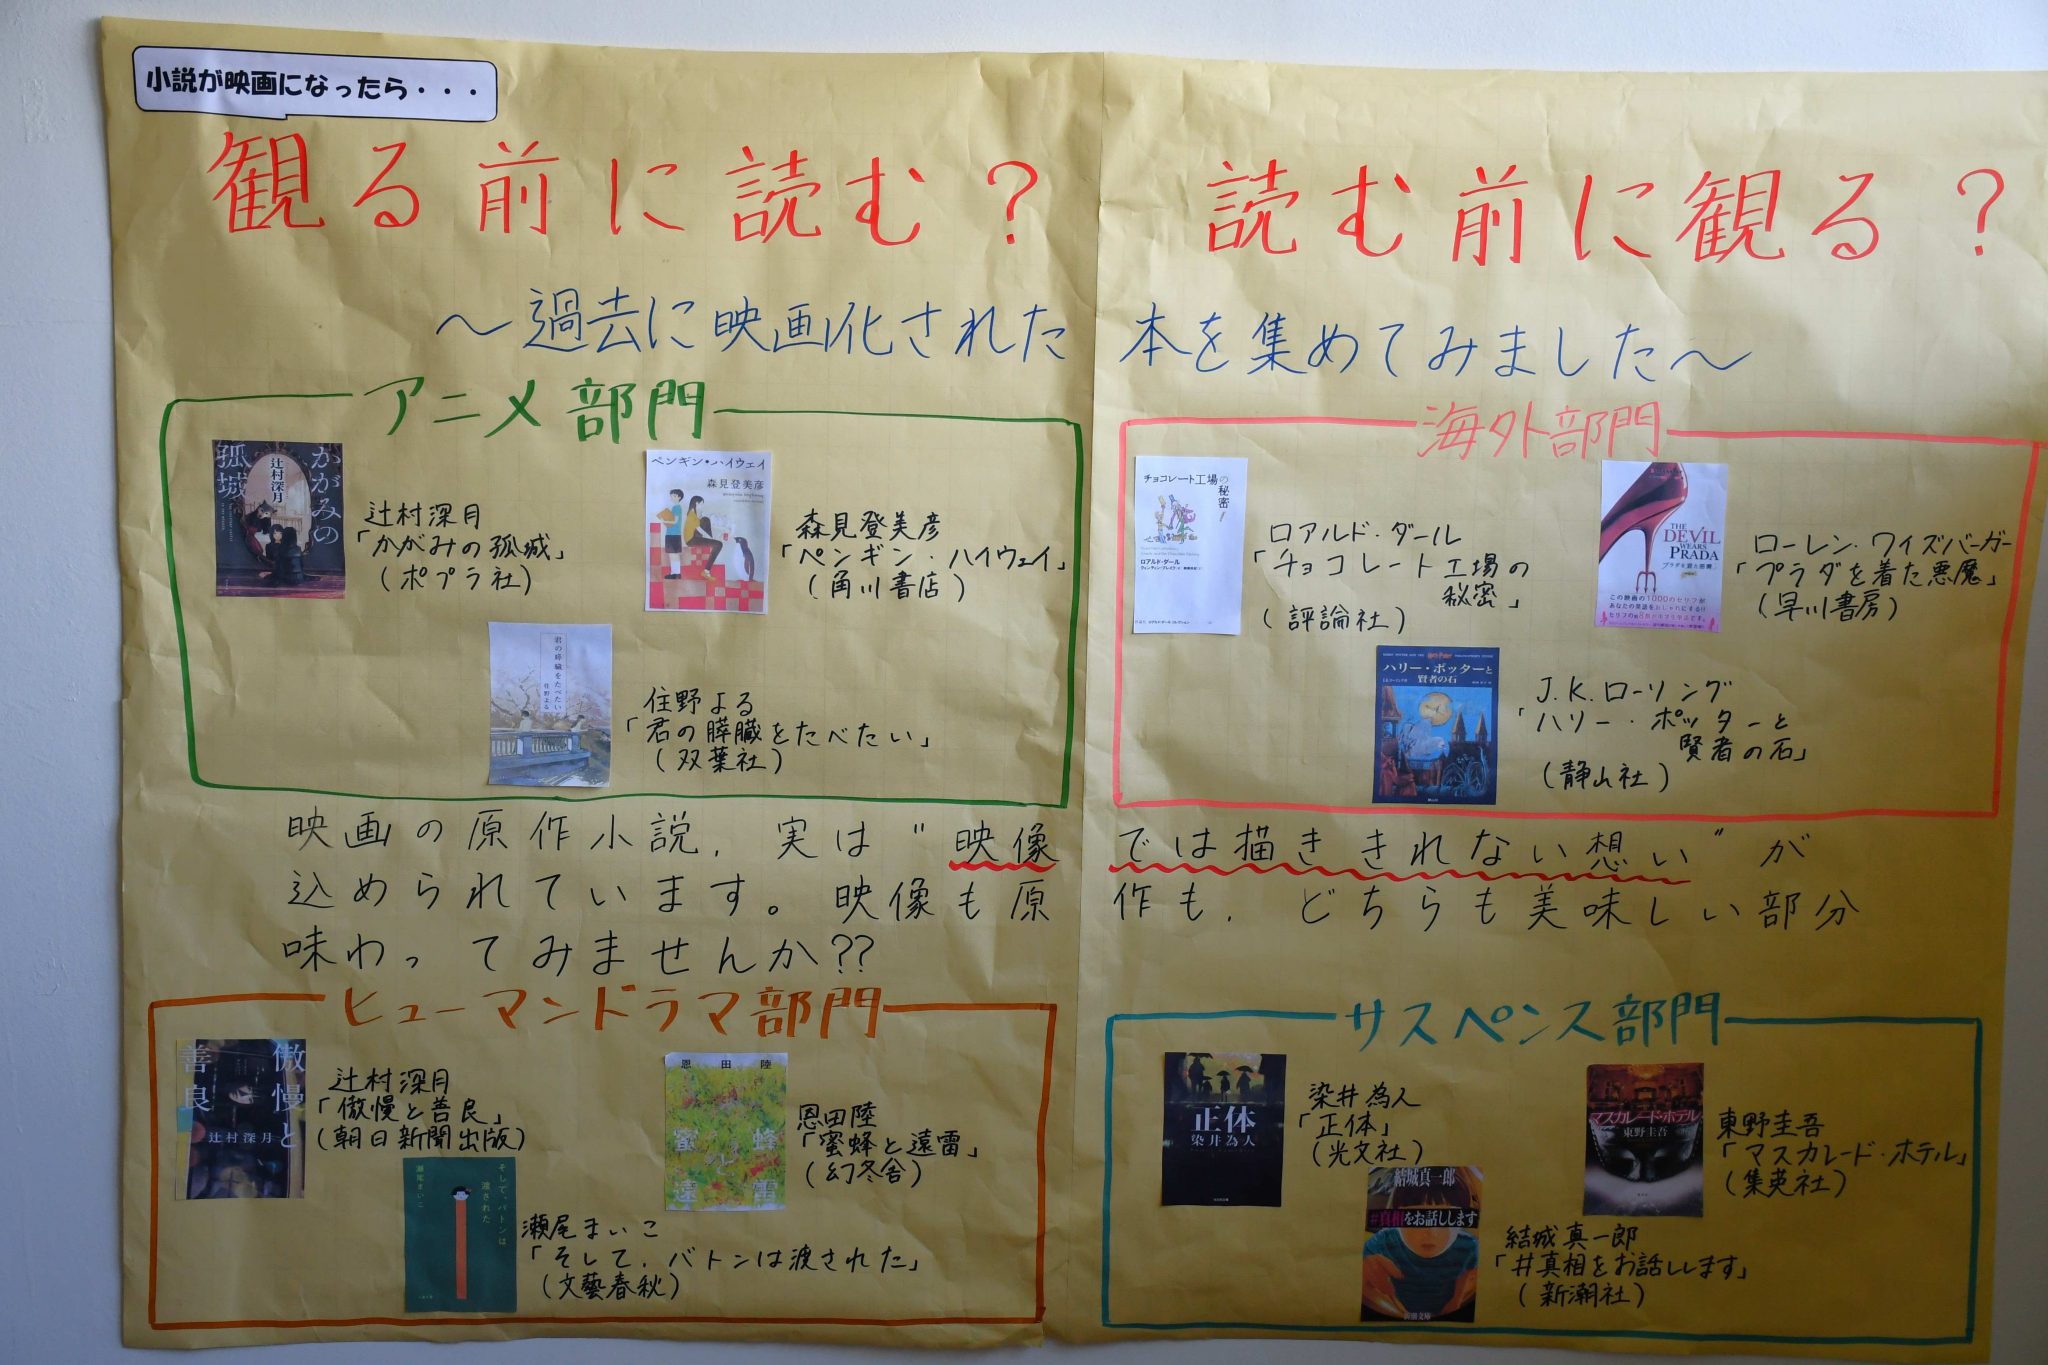 小説が映画になったら・・・
観る前に読む? 読む前に観る?
～過去に映画化された本を集めてみました～
アニメ部門
かがみの孤城
辻村深月
辻村深月
「かがみの孤城」
(ポプラ社)
ペンギン・ハイウェイ
森見登美彦
森見登美彦
「ペンギン・ハイウェイ」
(角川書店)
君の膵臓をたべたい
住野よる
住野よる
「君の膵臓をたべたい」
(双葉社)
海外部門
チョコレート工場の秘密
ロアルド・ダール
ロアルド・ダール
「チョコレート工場の
秘密」
(評論社)
THE
DEVIL
WEARS
PRADA
プラダを着た悪魔
この映画の1000のセリフが
あなたの英語をおしゃれにする!!
ローレン・ワイズバーガー
「プラダを着た悪魔」
(早川書房)
ハリー・ポッターと
賢者の石
J.K.ローリング
「ハリー・ポッターと
賢者の石」
(静山社)
映画の原作小説、実は"映像では描ききれない想い"が
込められています。映像も原作も、どちらも美味しい部分
味わってみませんか??
ヒューマンドラマ部門
傲慢と
善良
辻村深月
辻村深月
「傲慢と善良」
(朝日新聞出版)
恩田陸
蜜蜂と
遠雷
恩田陸
「蜜蜂と遠雷」
(幻冬舎)
そして、バトンは
渡された
瀬尾まいこ
瀬尾まいこ
「そして、バトンは渡された」
(文藝春秋)
サスペンス部門
正体
染井為人
染井為人
「正体」
(光文社)
マスカレード・ホテル
東野圭吾
東野圭吾
「マスカレード・ホテル」
(集英社)
結城真一郎
#真相をお話しします
新潮文庫
結城真一郎
「#真相をお話しします」
(新潮社)